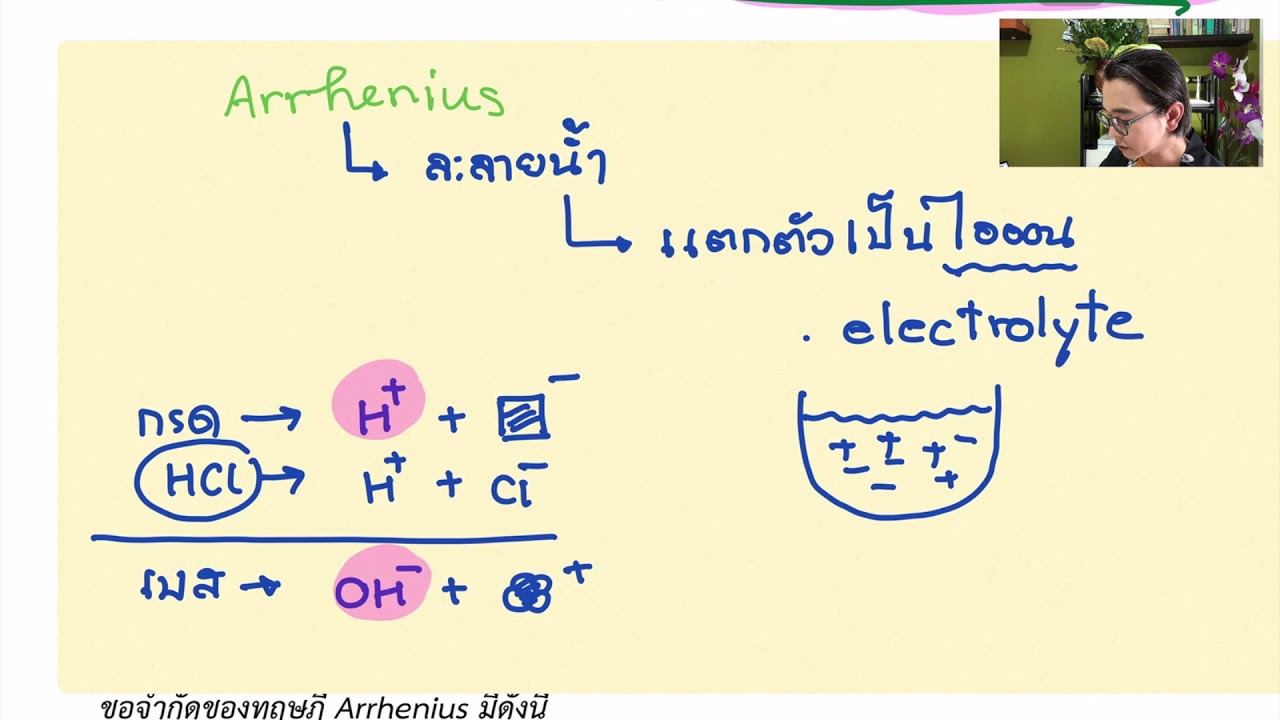 Arrhenius
ละลายน้ำ
แตกตัวเป็นไอออน
. electrolyte
กรด → H⁺ + ▨⁻
HCl → H⁺ + Cl⁻
+ + + -
- - - +
เบส → OH⁻ + ⁺
ข้อจำกัดของทฤษฎี Arrhenius มีดังนี้